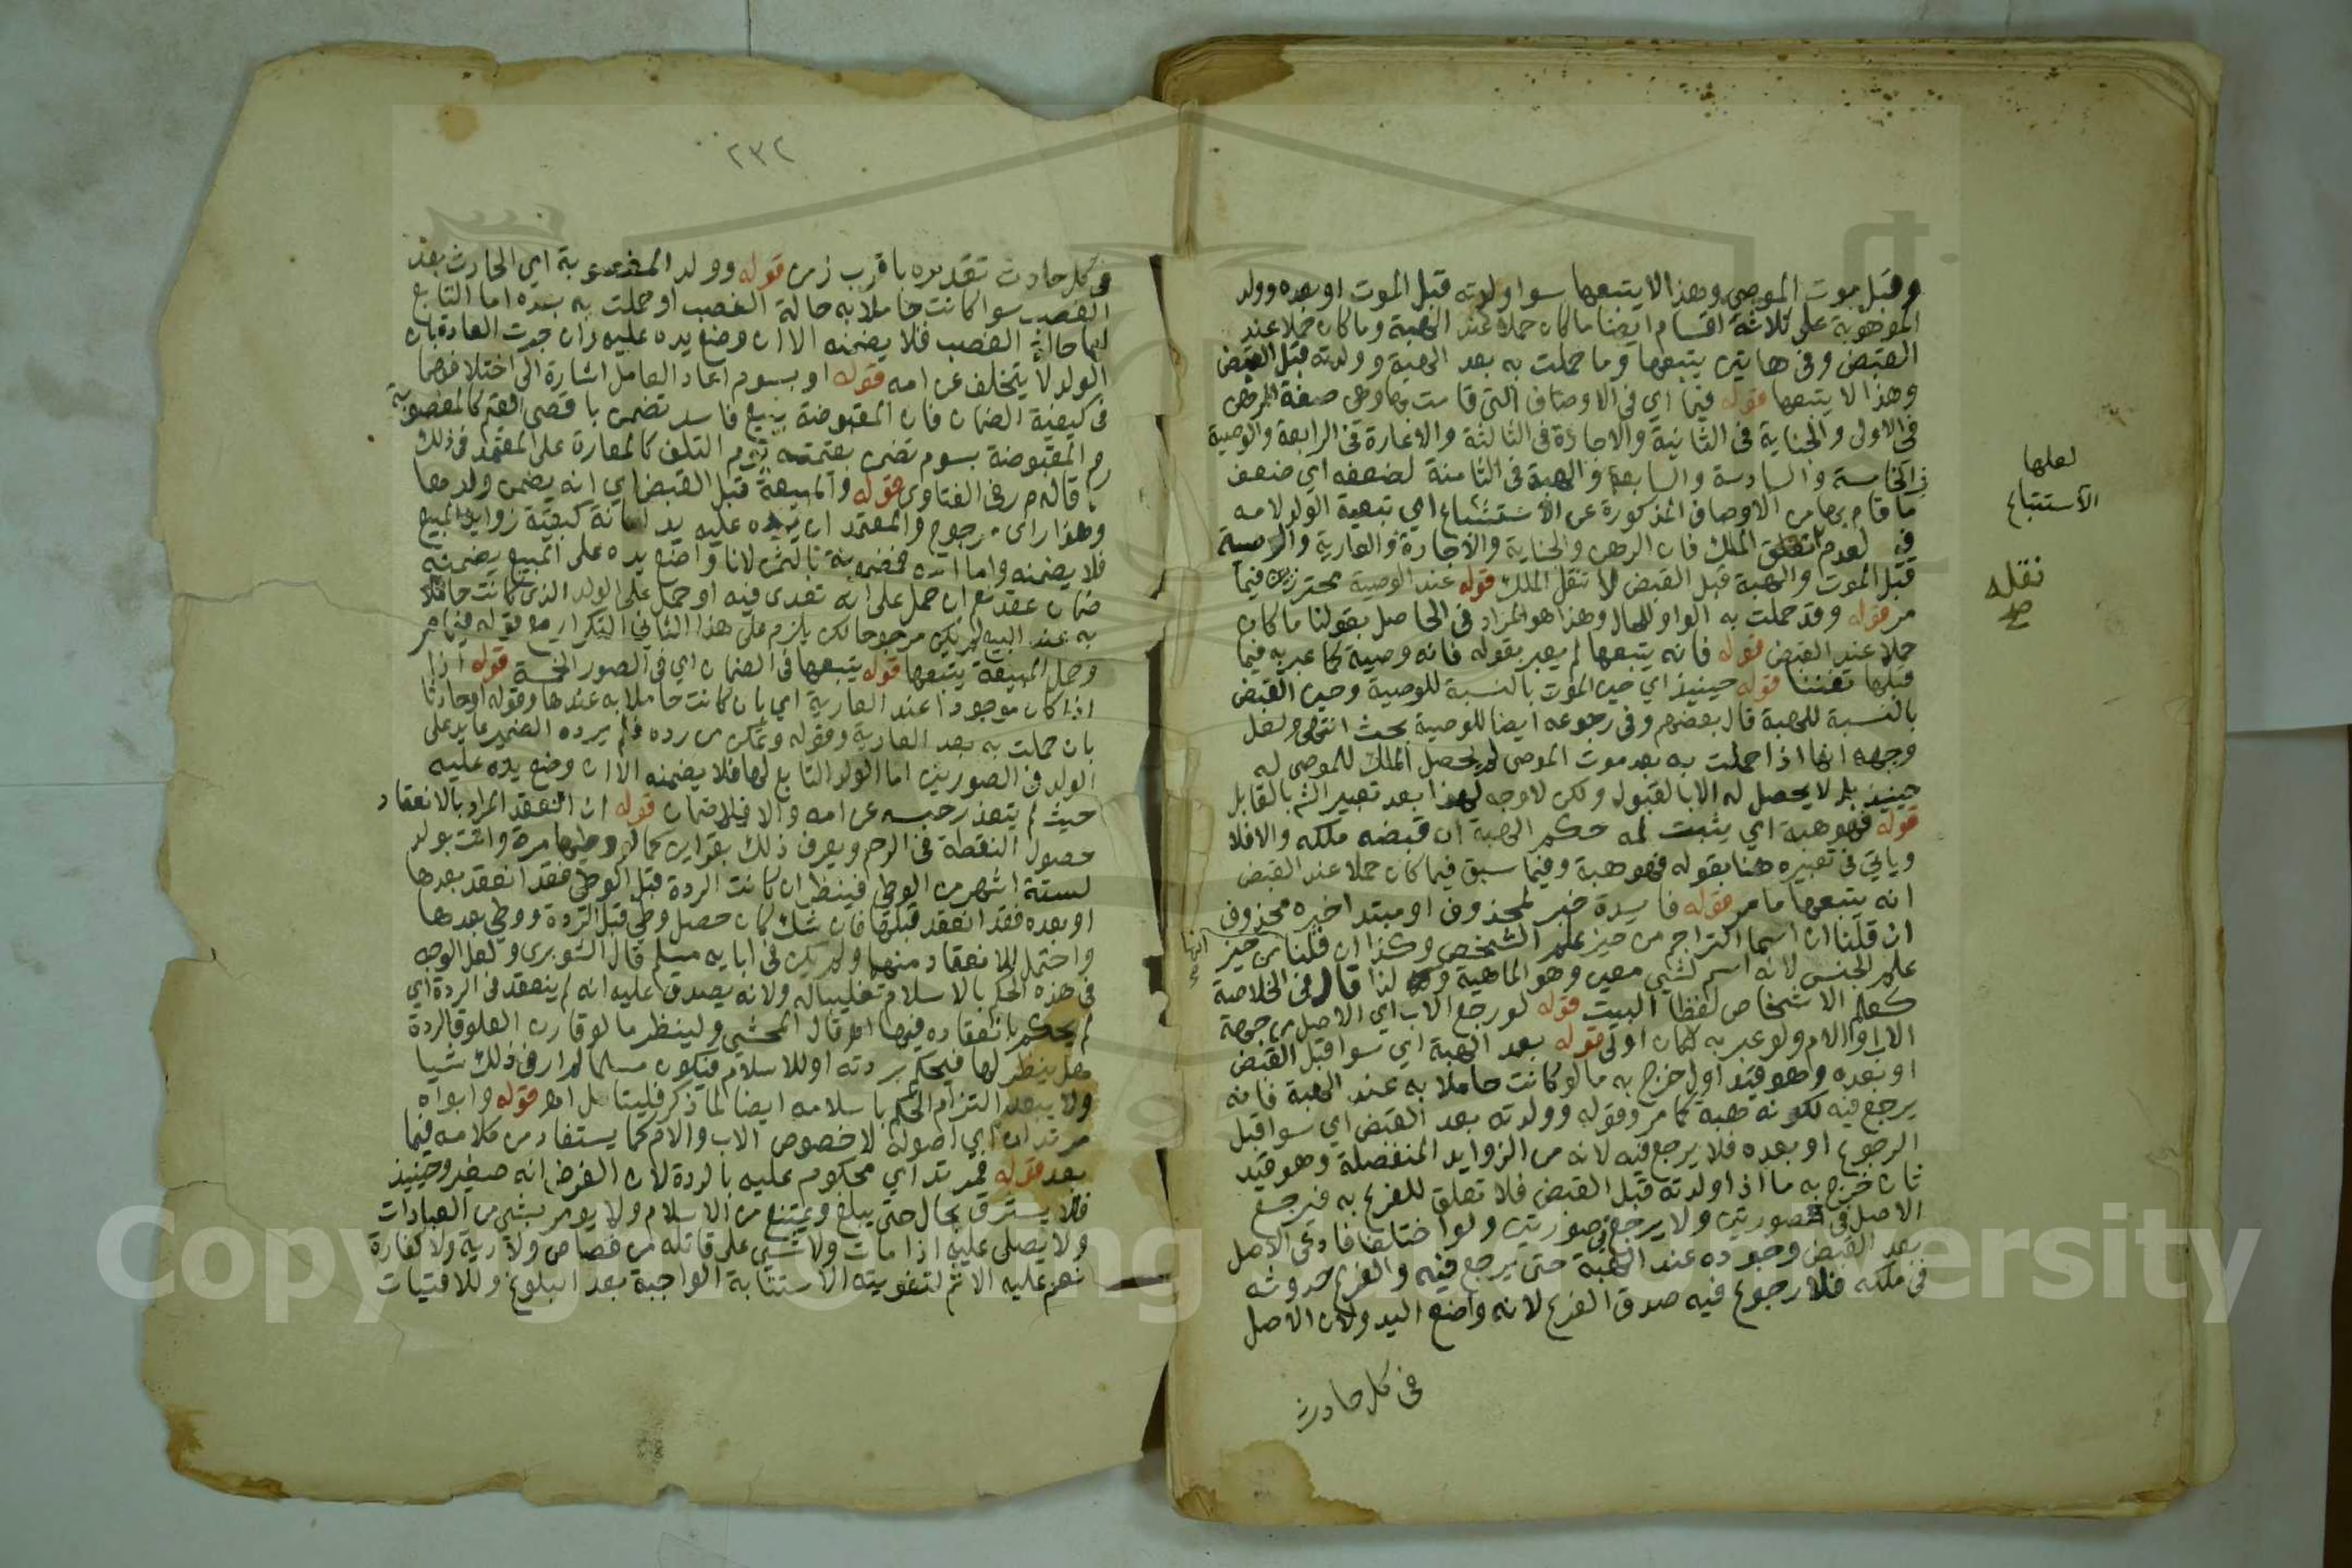 وقبل موت الموصي وهذا لا يتبعها سوا ولدته قبل الموت او بعده وولد
الموهوبة على ثلاثة اقسام ايضا ما كان حملا عند الهبة وما كان حملا عند
القبض وفي هاتين يتبعها وما حملت به بعد الهبة وولدته قبل القبض
وهذا لا يتبعها قوله فيما اي في الاوصاف التي قامت بها وهي صفة الرهن
في الاولى والجناية في الثانية والاجارة في الثالثة والاعارة في الرابعة والوصية
في الخامسة والسادسة والسابعة والهبة في الثامنة لضعفه اي ضعف
ما قام بها من الاوصاف المذكورة عن الاستتباع اي تبعية الولد لامه
فيه لعدم تعلق الملك فان الرهن والجناية والاجارة والعارية والوصية
قبل الموت والهبة قبل القبض لا تنقل الملك قوله عند الوصية محترزين فيما
مر قوله وقد حملت به الواو للحال وهذا هو المراد في الحاصل بقولنا ما كان
حملا عند القبض قوله فانه يتبعها لم يعبر بقوله فانه وصية كما عبر به فيما
قبلها تفننا قوله حينيذ اي حين الموت بالنسبة للوصية وحين القبض
بالنسبة للهبة قال بعضهم وفي رجوعه ايضا للوصية بحث انتهى ولعل
وجهه انها اذا حملت به بعد موت الموصي لم يحصل الملك للموصى له
حينيذ بل لا يحصل له الا بالقبول ولكن لا وجه لهذا بعد تعبير الشم بالقابل
قوله فهو هبة اي يثبت له حكم الهبة ان قبضه ملكه والا فلا
وياتي في تعبيره هنا بقوله فهو هبة وفيما سبق فيما كان حملا عند القبض
انه يتبعها ما مر قوله فايدة خبر لمحذوف او مبتدا خبره محذوف
ان قلنا ان اسما التراجم من حيز علم الشخص وكذا ان قلنا من حيز
علم الجنس لانه اسم لشي معين وهو الماهية ولذا قال في الخلاصة
كعلم الاشخاص لفظا البيت قوله لو رجع الاب اي الاصل من جهة
الاب او الام ولو عبر به لكان اولى قوله بعد الهبة اي سوا قبل القبض
او بعده وهو قيد اول خرج به ما لو كانت حاملا به عند الهبة فانه
يرجع فيه لكونه هبة كما مر وقوله وولدته بعد القبض اي سوا قبل
الرجوع او بعده فلا يرجع فيه لانه من الزوايد المنفصلة وهو قيد
ثان خرج به ما اذا ولدته قبل القبض فلا تعلق للفرع به فيرجع
الاصل في صورتين ولا يرجع في صورتين ولو اختلفا فادعى الاصل
بعد القبض وجوده عند الهبة حتى يرجع فيه والفرع حدوثه
في ملكه فلا رجوع فيه صدق الفرع لانه واضع اليد ولان الاصل
في كل حادث
لعلها
الاستتباع
نقله
صح
٢٣٢
في كل حادث تقديره باقرب زمن قوله وولد المغصوبة اي الحادث بعد
الغصب سوا كانت حاملا به حالة الغصب او حملت به بعده اما التابع
لها حالة الغصب فلا يضمنه الا ان وضع يده عليه وان جرت العادة بان
الولد لا يتخلف عن امه قوله او بسوم اعاد العامل اشارة الى اختلافهما
في كيفية الضمان فان المقبوضة ببيع فاسد تضمن باقصى القيم كالمغصوبة
والمقبوضة بسوم تضمن بقيمته يوم التلف كالمعارة على المعتمد في ذلك
ما قاله م ر في الفتاوى قوله والمبيعة قبل القبض اي انه يضمن ولدها
وهذا راى مرجوح والمعتمد ان يده عليه يد امانة كبقية زوايد المبيع
فلا يضمنه واما امه فمضمونة بالثمن لانا واضع يده على المبيع يضمنه
ضمان عقد نعم ان حمل على انه تعدى فيه او حمل على الولد الذي كانت حاملا
به عند البيع لم يكن مرجوحا لكن يلزم على هذا الثاني التكرار مع قوله فيما مر
وحمل المبيعة يتبعها قوله يتبعها في الضمان اي في الصور الخمسة قوله اذا
اذا كان موجودا عند العارية اي بان كانت حاملا به عندها وقوله او حادثا
بان حملت به بعد العارية وقوله وتمكن من رده فلم يرده الضمير عايد على
الولد في الصورتين اما الولد التابع لها فلا يضمنه الا ان وضع يده عليه
حيث لم يتعذر حبسه عن امه والا فلا ضمان قوله ان انعقد المراد بالانعقاد
حصول النطفة في الرحم ويعرف ذلك بقراين كما لو وطيها مرة واتت بولد
لستة اشهر من الوطي فينظر ان كانت الردة قبل الوطي فقد انعقد بعدها
او بعده فقد انعقد قبلها فان شك كان حصل وطي قبل الردة ووطي بعدها
واحتمل الانعقاد منهما ولم يكن في ابايه مسلم قال الشوبري ولعل الوجه
في هذه الحكم بالاسلام تغليبا له ولانه يصدق عليه انه لم ينعقد في الردة اي
لم يحكم بانعقاده فيها اه قال المحشي ولينظر ما لو قارن العلوق الردة
هل ينظر لها فيحكم بردته او للاسلام فيكون مسلما لم ار في ذلك شيا
ولا يبعد التزام الحكم باسلامه ايضا لما ذكر فليتامل اه قوله وابواه
مرتدان اي اصوله لا خصوص الاب والام كما يستفاد من كلامه فيما
بعد قوله فمرتد اي محكوم عليه بالردة لان الفرض انه صغير وحينيذ
فلا يسترق بحال حتى يبلغ ويمتنع من الاسلام ولا يومر بشي من العبادات
ولا يصلى عليه اذا مات ولا شي على قاتله من قصاص ولا دية ولا كفارة
نعم عليه الاثم لتفويته الاستتابة الواجبة بعد البلوغ وللافتيات
Copyright © King Saud University